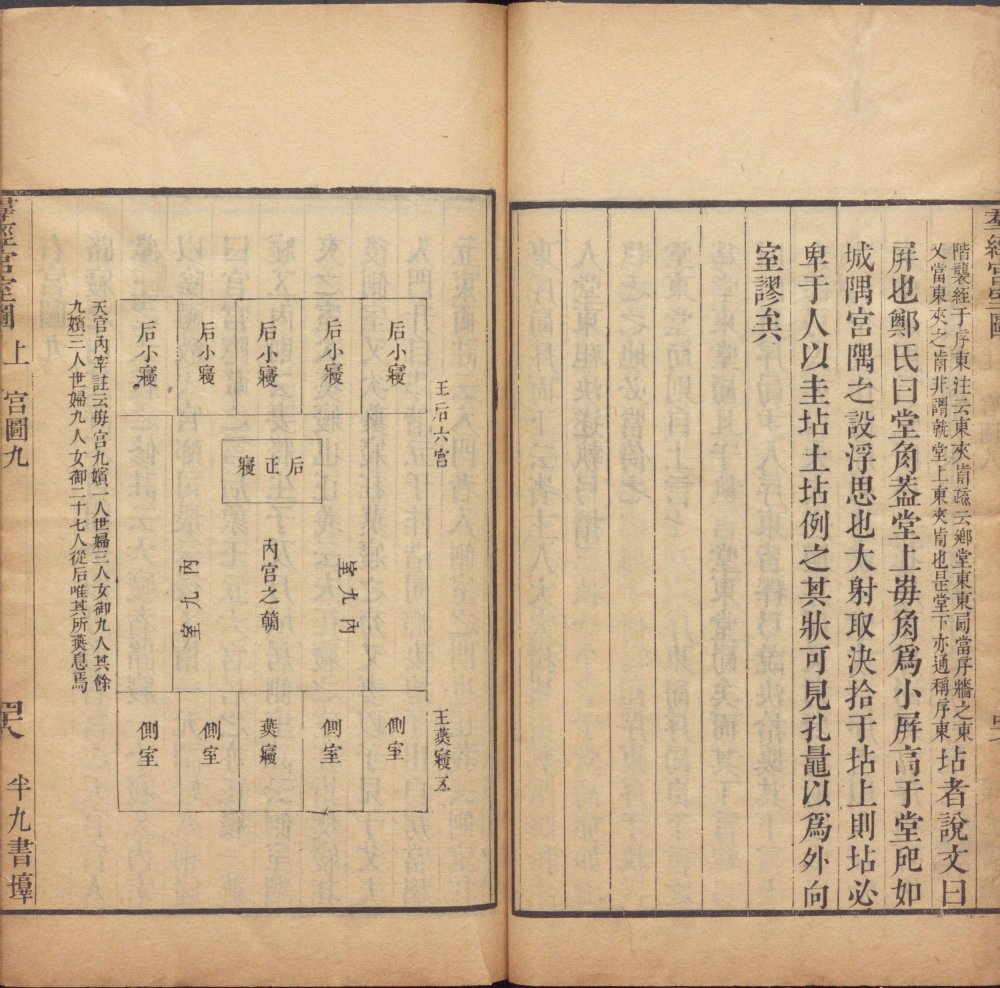 羣經宮室圖
階襲絰于序東注云東夾前疏云鄉堂東東面當序牆之東
又當東夾之前非謂就堂上東夾前也是堂下亦通稱序東
坫者說文曰
屏也鄭氏曰堂角葢堂上每角爲小屏高于堂戺如
城隅宮隅之設浮思也大射取決拾于坫上則坫必
卑于人以圭坫土坫例之其狀可見孔鼂以爲外向
室謬矣
王后六宮
后小寢
后小寢
后小寢
后小寢
后小寢
后正寢
內宮之朝
內九室
內九室
王燕寢五
側室
側室
燕寢
側室
側室
天官內宰註云每宮九嬪一人世婦三人女御九人其餘
九嬪三人世婦九人女御二十七人從后唯其所燕息焉
羣經宮室圖
上
宮圖九
半九書塾